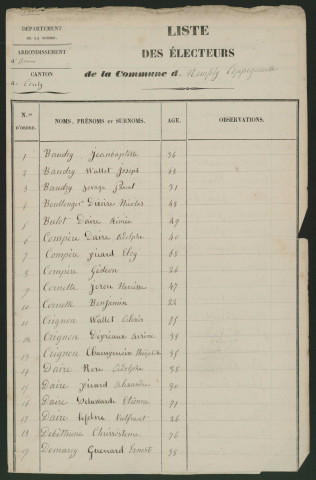 DÉPARTEMENT
DE LA SOMME.
ARRONDISSEMENT
d'Amiens
CANTON
de Conty
LISTE
DES ÉLECTEURS
de la Commune de Namps
N.os D'ORDRE. NOMS, PRÉNOMS et SURNOMS. AGE. OBSERVATIONS.
1 Baudry Jeanbaptiste 36
2 Baudry Wallet Joseph
3 Baudry Sauvage Pascal 71
4 Boullenger Dizoire Nicolas 48
5 Bulot Daire Aimée 49
6 Compère Daire Adolphe 40
7 Compère Girard Eloy 65
8 Compère Gédéon 26
9 Cornette Jérou Narcisse 47
10 Cornette Benjamin 22
11 Crignon Wallet 55
12 Crignon Dépréaux 35
13 Crignon Théophile 35
14 Daire Rose Adolphe 35
15 Daire Girard Alexandre 30
16 Daire Delawarde Etienne 71
17 Daire Lefebvre Vulfrant 26
18 Debéthune Chrisostome 76
19 Demarcy Guénard Ernest 35